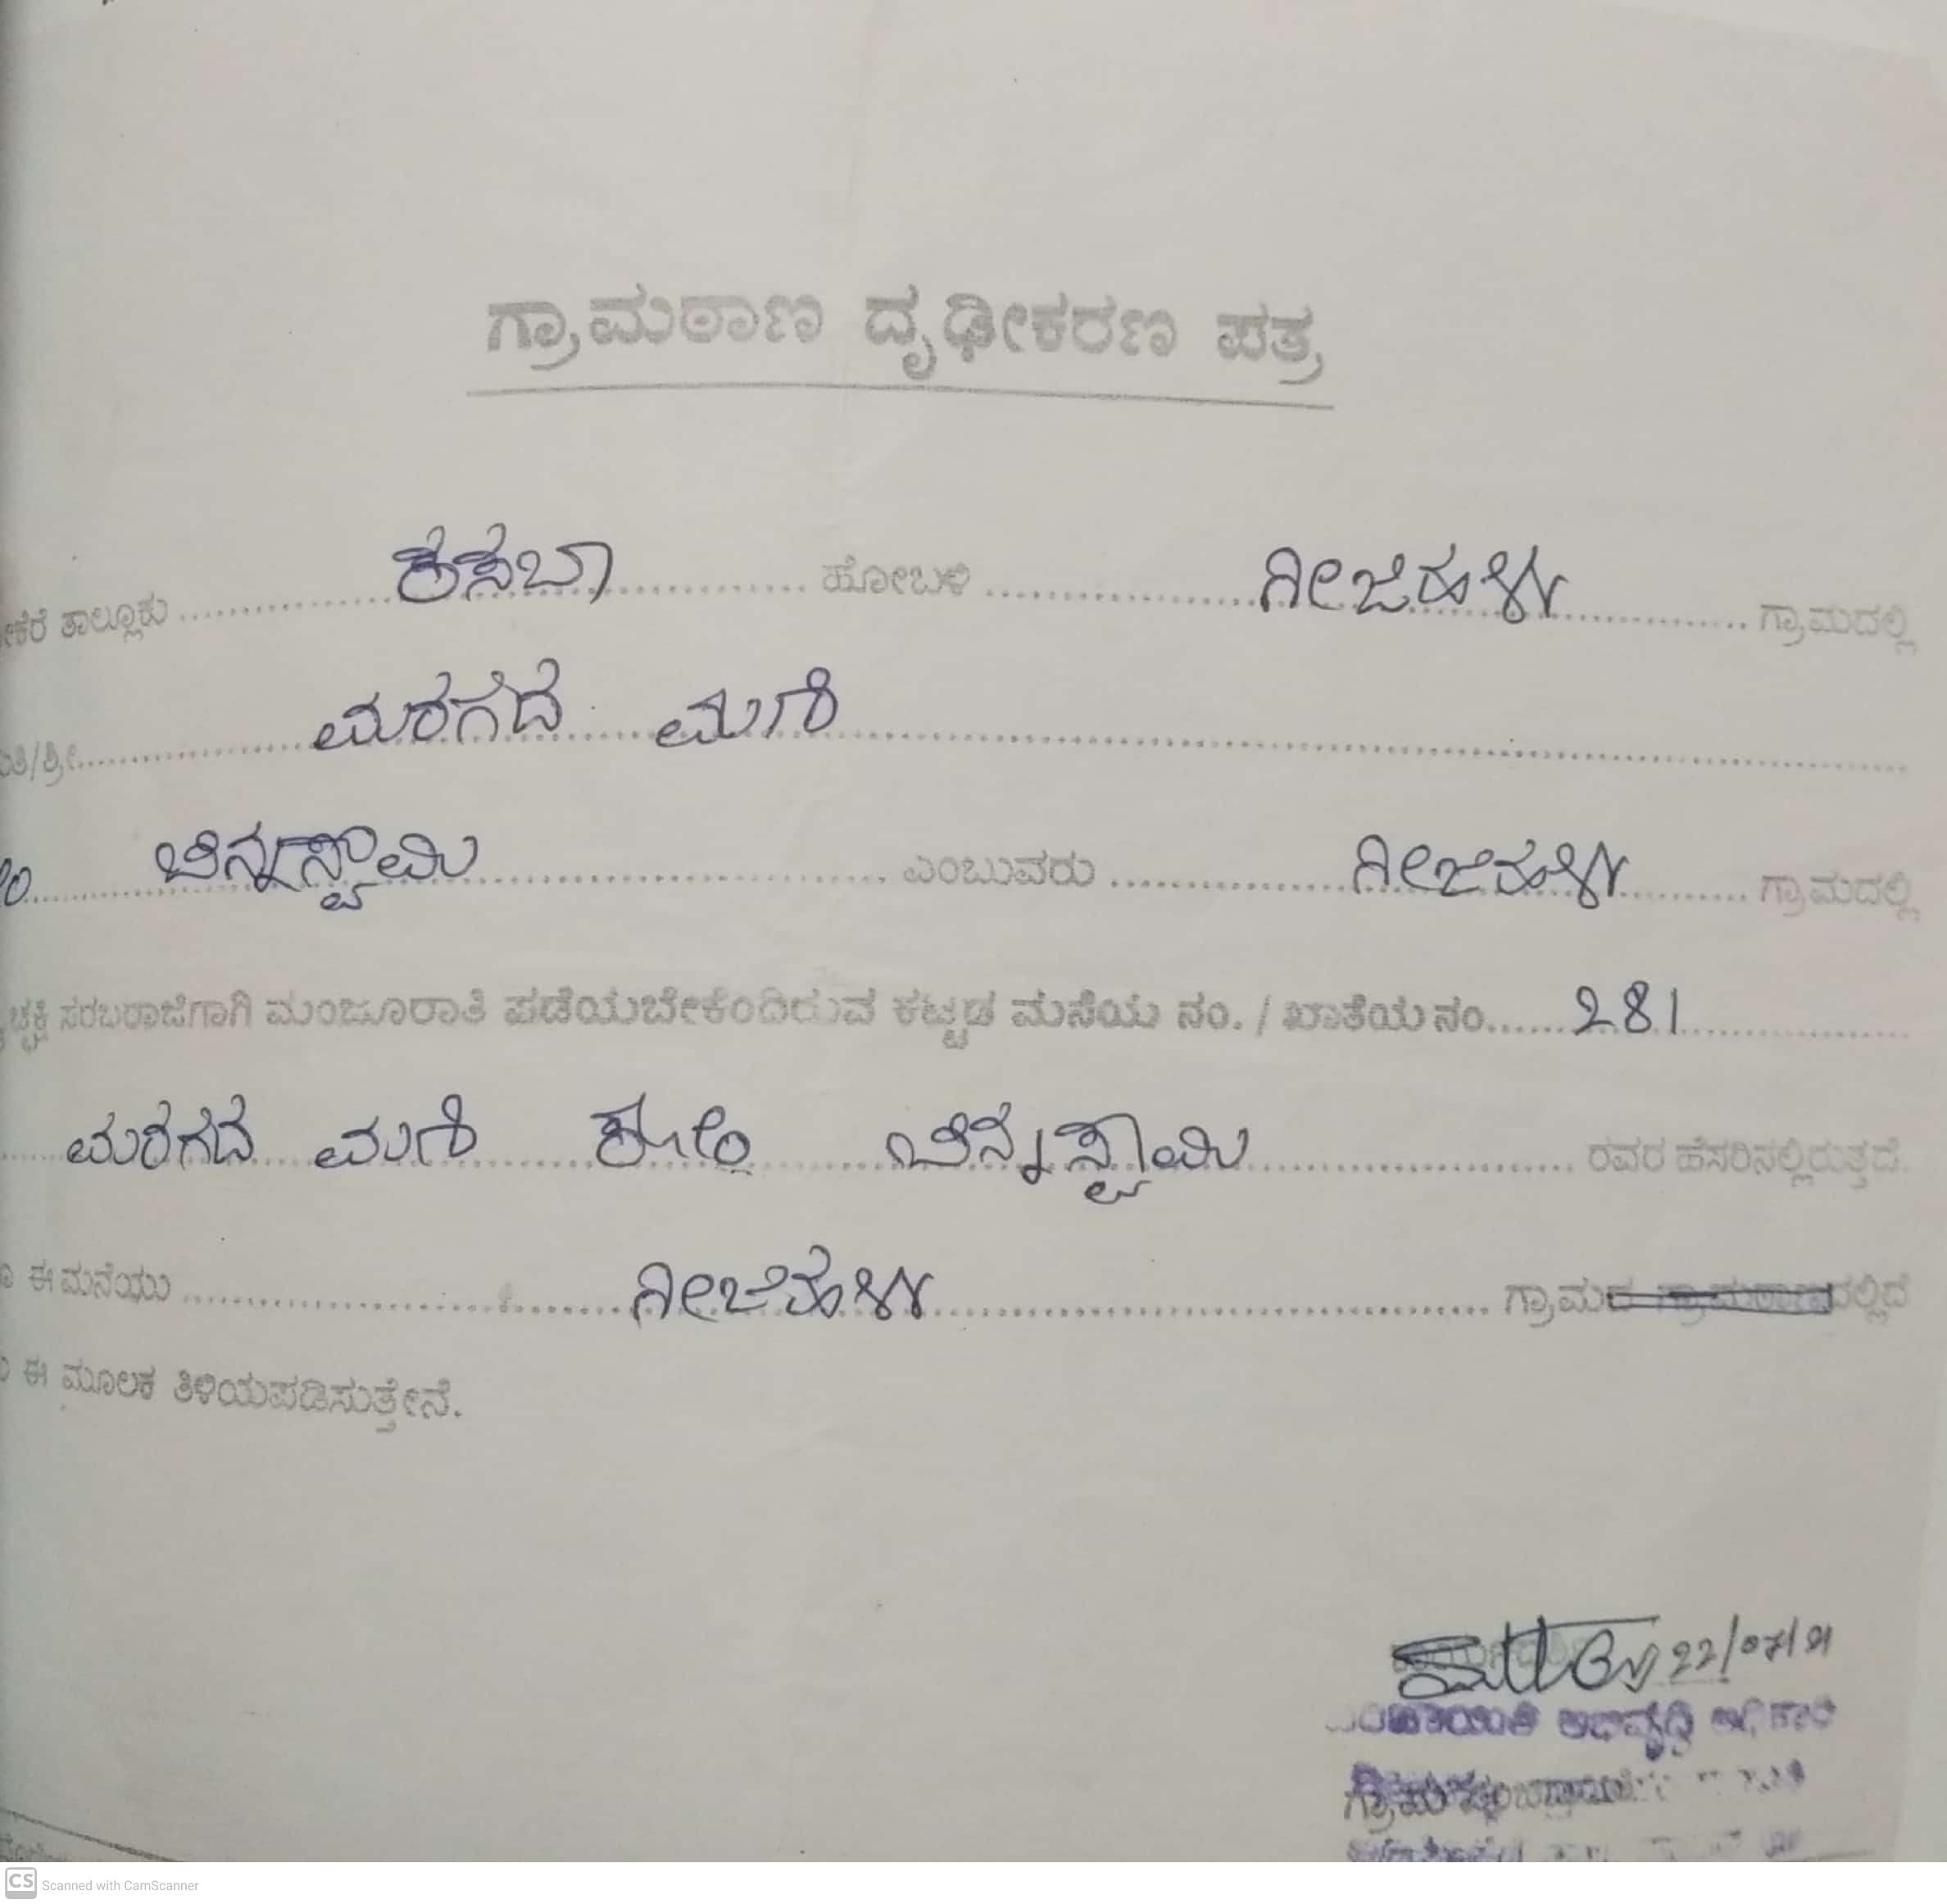 ಗ್ರಾಮಠಾಣ ದೃಢೀಕರಣ ಪತ್ರ
ಕೆರೆ ತಾಲ್ಲೂಕು ಕಸಬಾ ಹೋಬಳಿ ಗೀಜಿಹಳ್ಳಿ ಗ್ರಾಮದಲ್ಲಿ
ಮತಿ/ಶ್ರೀ ಮರಗದ ಮಣಿ
ಚಿನ್ನಸ್ವಾಮಿ ಎಂಬುವರು ಗೀಜಿಹಳ್ಳಿ ಗ್ರಾಮದಲ್ಲಿ
ಸರಬರಾಜಿಗಾಗಿ ಮಂಜೂರಾತಿ ಪಡೆಯಬೇಕೆಂದಿರುವ ಕಟ್ಟಡ ಮನೆಯ ನಂ. / ಖಾತೆಯ ನಂ. 281
ಮರಗದ ಮಣಿ ಕೋಂ ಚಿನ್ನಸ್ವಾಮಿ ರವರ ಹೆಸರಿನಲ್ಲಿರುತ್ತದೆ.
ಈ ಮನೆಯು ಗೀಜಿಹಳ್ಳಿ ಗ್ರಾಮದ ಗ್ರಾಮಠಾಣದಲ್ಲಿದೆ
ಈ ಮೂಲಕ ತಿಳಿಯಪಡಿಸುತ್ತೇನೆ.
22/07/21
ಪಂಚಾಯಿತಿ ಅಭಿವೃದ್ಧಿ ಅಧಿಕಾರಿ
CS Scanned with CamScanner